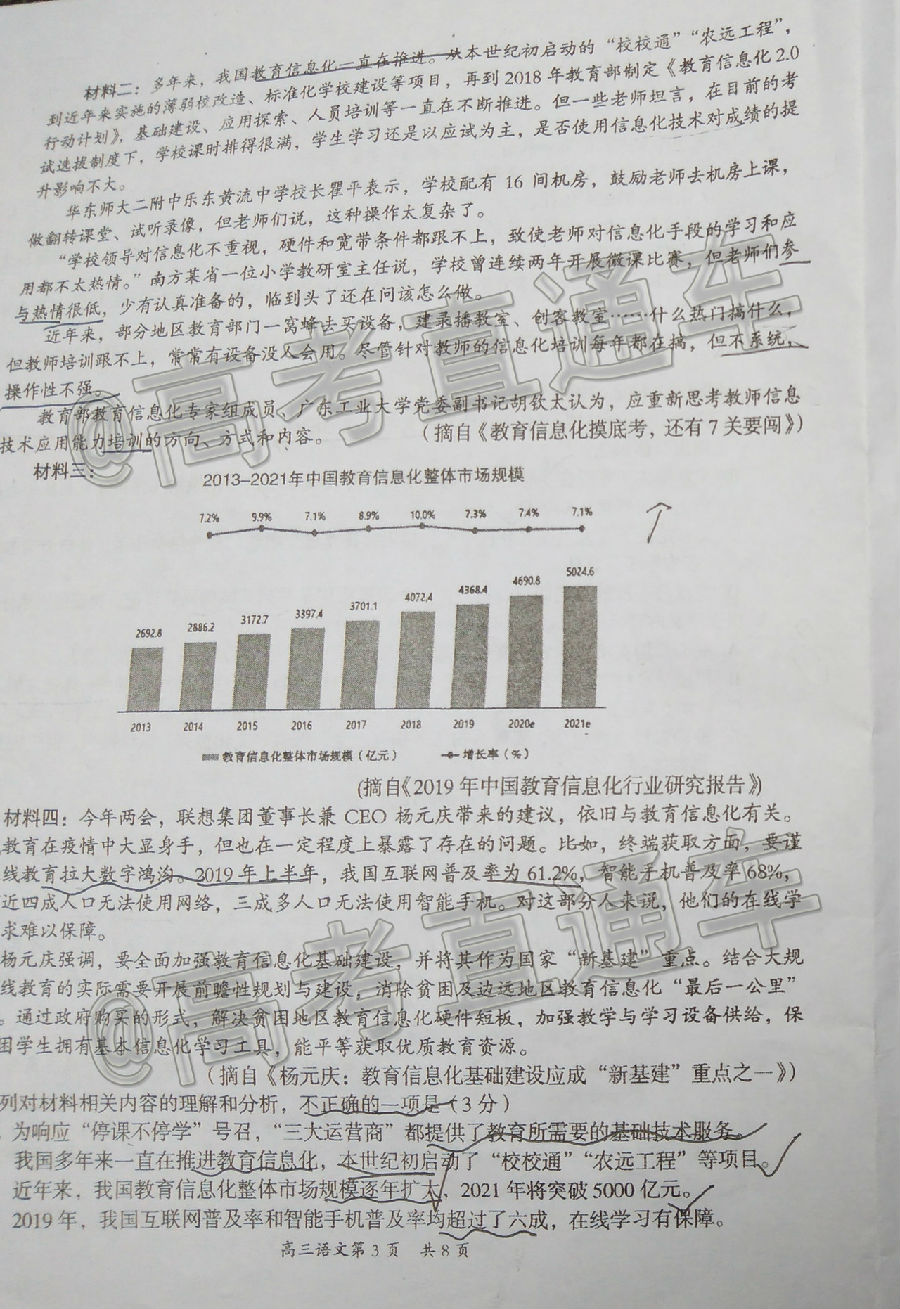 材料二：多年来，我国教育信息化一直在推进。从本世纪初启动的“校校通”“农远工程”，
到近年来实施的薄弱校改造、标准化学校建设等项目，再到2018年教育部制定《教育信息化2.0
行动计划》，基础建设、应用探索、人员培训等一直在不断推进。但一些老师坦言，在目前的考
试选拔制度下，学校课时排得很满，学生学习还是以应试为主，是否使用信息化技术对成绩的提
升影响不大。
华东师大二附中乐东黄流中学校长瞿平表示，学校配有16间机房，鼓励老师去机房上课，
做翻转课堂、试听录像，但老师们说，这种操作太复杂了。
“学校领导对信息化不重视，硬件和宽带条件都跟不上，致使老师对信息化手段的学习和应
用都不太热情。”南方某省一位小学教研室主任说，学校曾连续两年开展微课比赛，但老师们参
与热情很低，少有认真准备的，临到头了还在问该怎么做。
近年来，部分地区教育部门一窝蜂去买设备，建录播教室、创客教室……什么热门搞什么，
但教师培训跟不上，常常有设备没人会用。尽管针对教师的信息化培训每年都在搞，但不系统，
操作性不强。
教育部教育信息化专家组成员、广东工业大学党委副书记胡钦太认为，应重新思考教师信息
技术应用能力培训的方向、方式和内容。 （摘自《教育信息化摸底考，还有7关要闯》）
材料三：
2013-2021年中国教育信息化整体市场规模
7.2% 9.9% 7.1% 8.9% 10.0% 7.3% 7.4% 7.1%
2692.8 2886.2 3172.7 3397.4 3701.1 4072.4 4368.4 4690.8 5024.6
2013 2014 2015 2016 2017 2018 2019 2020e 2021e
教育信息化整体市场规模（亿元） 增长率（%）
(摘自《2019年中国教育信息化行业研究报告》)
材料四：今年两会，联想集团董事长兼CEO杨元庆带来的建议，依旧与教育信息化有关。
教育在疫情中大显身手，但也在一定程度上暴露了存在的问题。比如，终端获取方面，要谨
线教育拉大数字鸿沟。2019年上半年，我国互联网普及率为61.2%，智能手机普及率68%，
近四成人口无法使用网络，三成多人口无法使用智能手机。对这部分人来说，他们的在线学
求难以保障。
杨元庆强调，要全面加强教育信息化基础建设，并将其作为国家“新基建”重点。结合大规
线教育的实际需要开展前瞻性规划与建设，消除贫困及边远地区教育信息化“最后一公里”
。通过政府购买的形式，解决贫困地区教育信息化硬件短板，加强教学与学习设备供给，保
困学生拥有基本信息化学习工具，能平等获取优质教育资源。
（摘自《杨元庆：教育信息化基础建设应成“新基建”重点之一》）
列对材料相关内容的理解和分析，不正确的一项是（3分）
为响应“停课不停学”号召，“三大运营商”都提供了教育所需要的基础技术服务。
我国多年来一直在推进教育信息化，本世纪初启动了“校校通”“农远工程”等项目。
近年来，我国教育信息化整体市场规模逐年扩大，2021年将突破5000亿元。
2019年，我国互联网普及率和智能手机普及率均超过了六成，在线学习有保障。
高三语文第3页 共8页
@高考直通车
@高考直通车